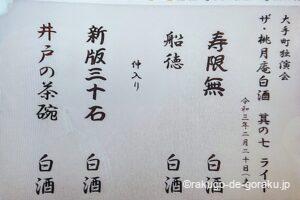 大手町独演会
ザ・桃月庵白酒 其の七 ライ
令和三年二月二十日（
寿限無 白酒
船徳 白酒
仲入り
新版三十石 白酒
井戸の茶碗 白酒
©rakugo-de-goraku.jp